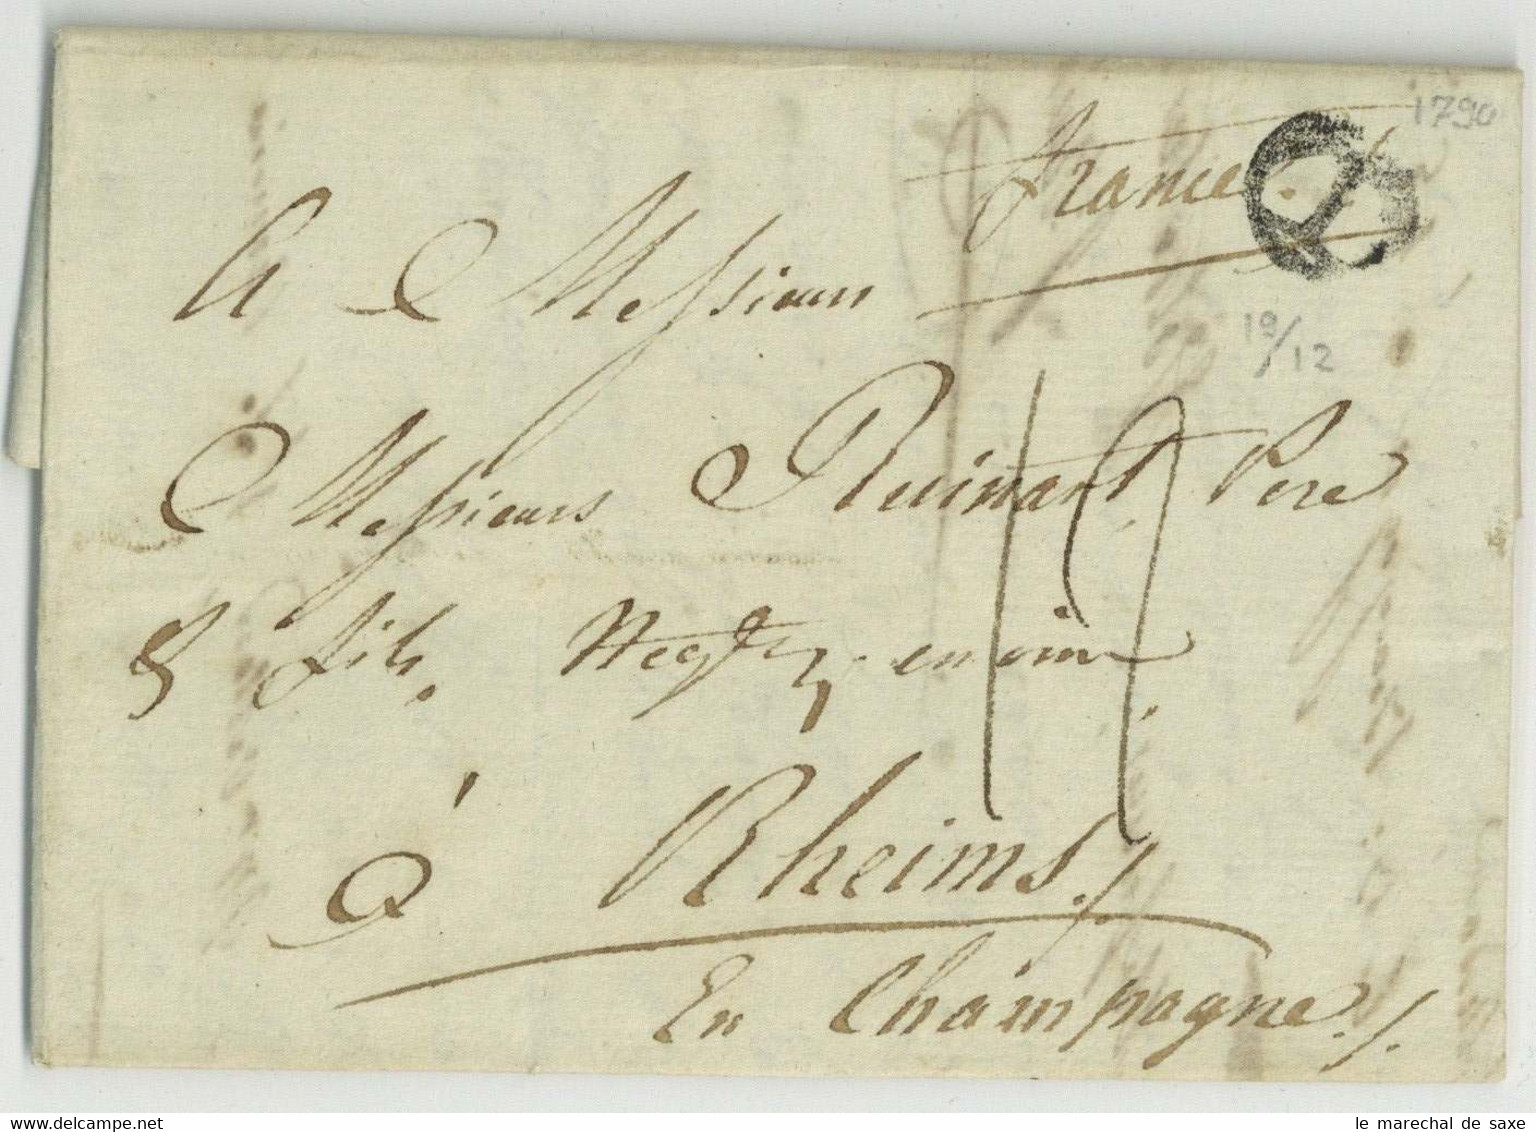 1790
France
A Messieurs
19/12
Messieurs Ruinart Pere
& fils. Negts en vin
à Rheims./
En Champagne./.
www.delcampe.net
le marechal de saxe